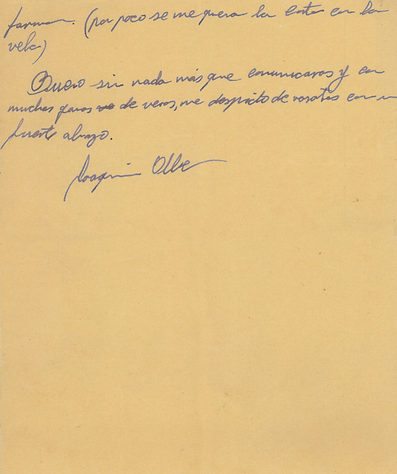 (por poco se me quema la carta con la
vela)
Bueno sin nada más que comunicaros y con
muchas ganas de veros, me despido de vosotros con un
fuerte abrazo.
Joaquin